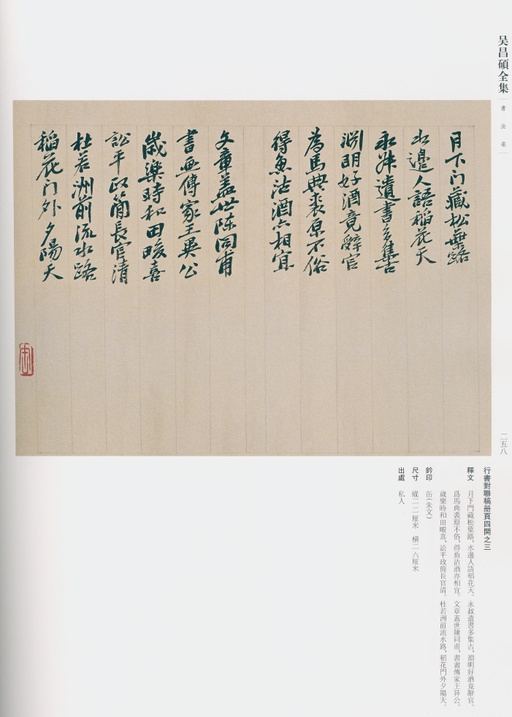 吴昌碩全集
書法卷一
二五八
月下門藏松葉路
水邊人語稻花天
永叔遺書多集古
淵明好酒竟辭官
為馬典裘原不俗
得魚沽酒亦相宜
文章蓋世陳同甫
書畫傳家王異公
歲樂時和田畯喜
訟平政簡長官清
杜若洲前流水路
稻花門外夕陽天
行書對聯稿册頁四開之三
釋文 月下門藏松葉路，水邊人語稻花天。永叔遺書多集古，淵明好酒竟辭官。
為馬典裘原不俗，得魚沽酒亦相宜。文章蓋世陳同甫，書畫傳家王异公。
歲樂時和田畯喜，訟平政簡長官清。杜若洲前流水路，稻花門外夕陽天。
鈐印 缶（朱文）
尺寸 縱二二厘米 橫二六厘米
出處 私人